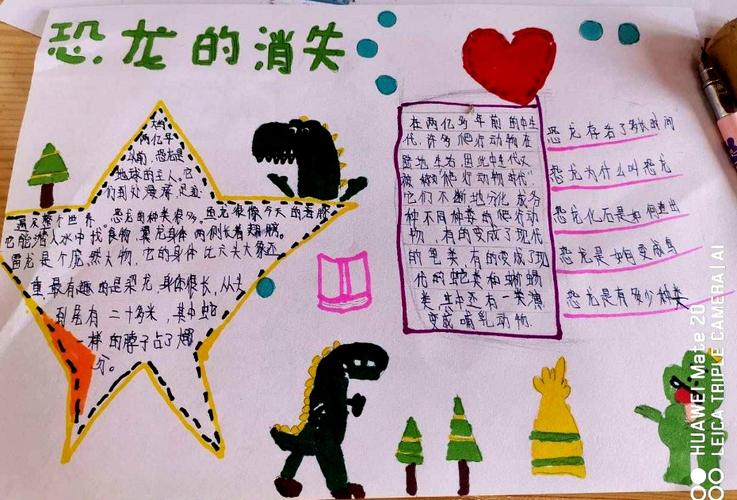 恐龙的消失
大约
两亿年
以前,恐龙是
地球的主人,它
们到处漫游,足迹
遍及整个世界。恐龙的种类很多,鱼龙很像今天的海豚
它能潜入水中找食物,翼龙身体两侧长着翅膀。
雷龙是个庞然大物,它的身体比六头大象还
重,最有趣的是梁龙,身体很长,从头
到尾有二十多米,其中蛇
一样的脖子占了
分。
在两亿多年前的中生
代,许多爬行动物在
陆地生活,因此中生代又
被
它们不断地分化成各
种不同种类的爬行动
物,有的变成了现代
的龟类有的变成了现
代的蛇类和蜥蜴
类,其中还有一类演
变成哺乳动物.
恐龙存在了多长时间
恐龙为什么叫恐龙
恐龙化石是如何查出
恐龙是如何变成鸟
恐龙是有多少种类
HUAWEI Mate 20
LEICA TRIPLE CAMERA | AI